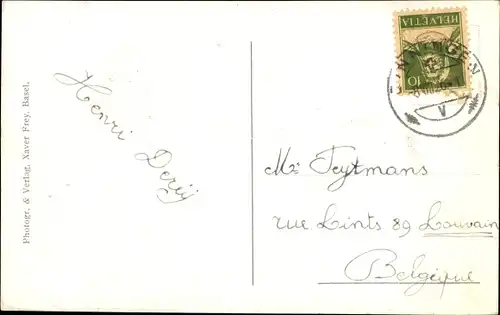 Photogr. & Verlag, Xaver Frey, Basel,
Henri
HELVETIA
10
V
Mr Teytmans
rue Lints 89 Louvain
Belgique